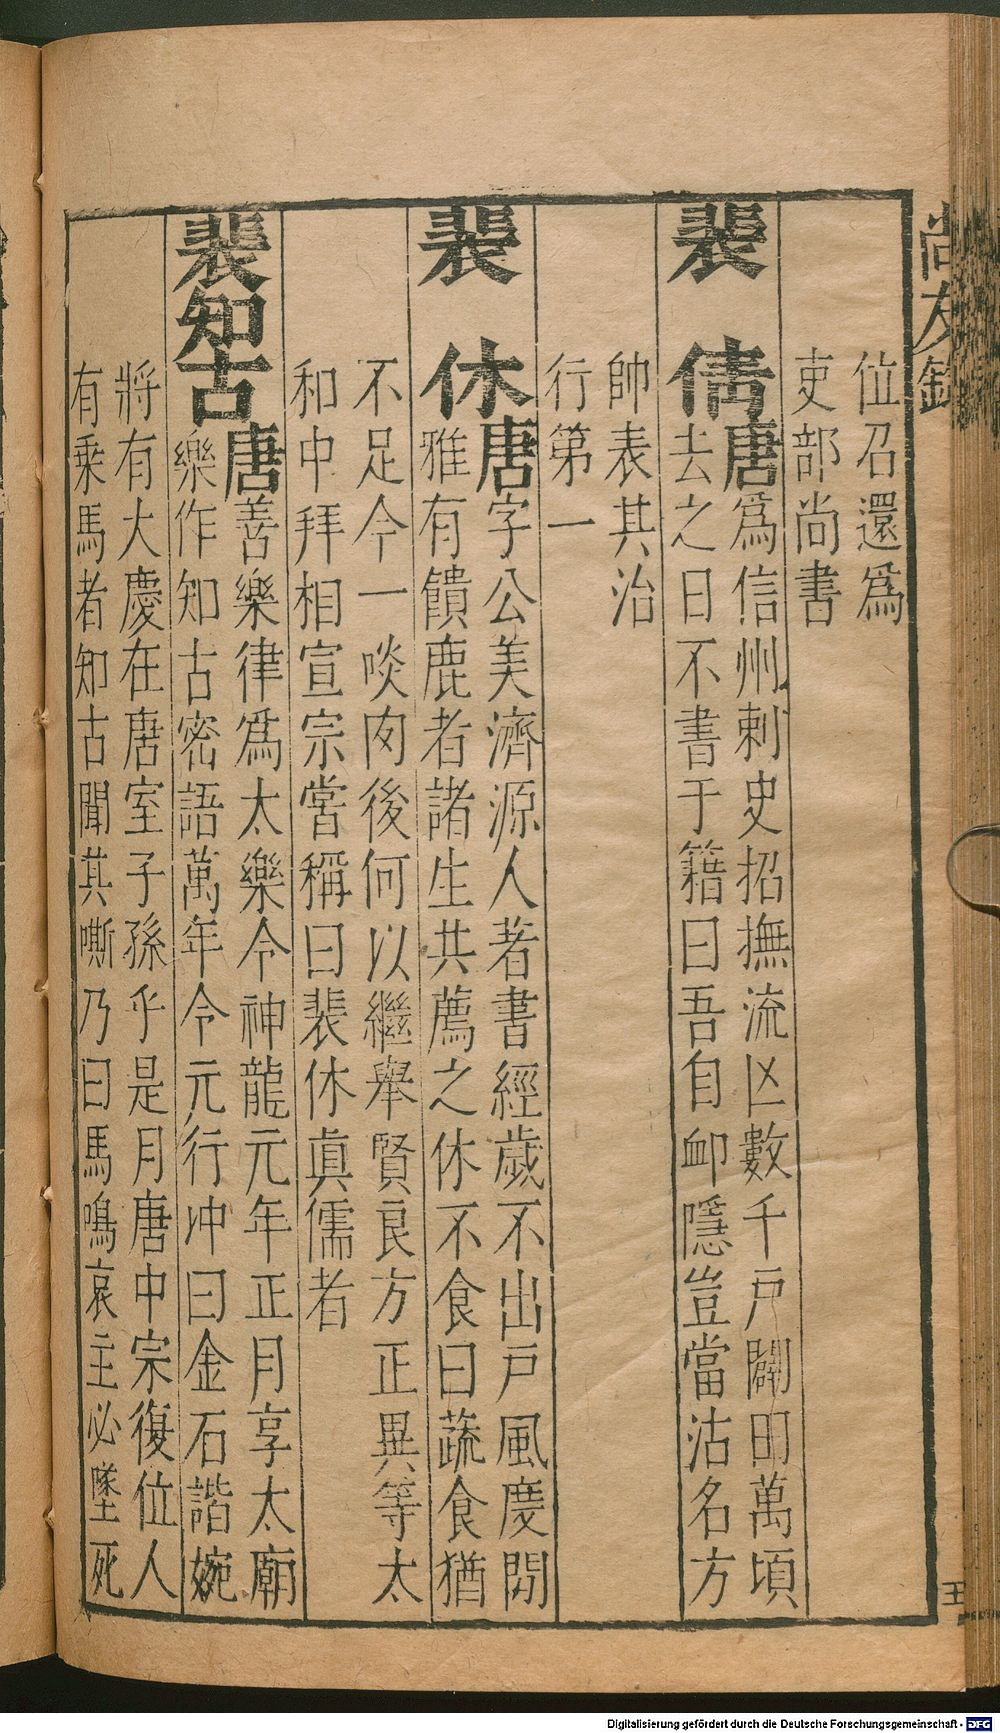 尚友錄
位召還爲
吏部尚書
裴 倩唐爲信州刺史招撫流亾數千戸闢田萬頃
去之日不書于籍曰吾自卹隱豈當沽名方
帥表其治
行第一
裴 休唐字公美濟源人著書經歲不出戸風度閒
雅有饋鹿者諸生共薦之休不食曰蔬食猶
不足今一啖肉後何以繼舉賢良方正異等太
和中拜相宣宗嘗稱曰裴休真儒者
裴知古唐善樂律爲太樂令神龍元年正月享太廟
樂作知古密語萬年令元行冲曰金石諧婉
將有大慶在唐室子孫乎是月唐中宗復位人
有乗馬者知古聞其嘶乃曰馬鳴哀主必墜死
Digitalisierung gefördert durch die Deutsche Forschungsgemeinschaft - DFG